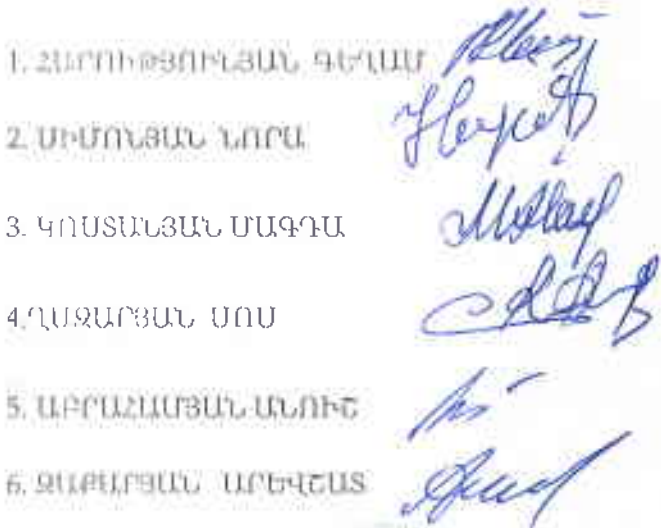 1. ՀԱՐՈՒԹՅՈՒՆՅԱՆ ԳԵՂԱՄ
2. ՍԻՄՈՆՅԱՆ ՆՈՐԱ
3. ԿՈՍՏԱՆՅԱՆ ՄԱԳԴԱ
4.ՂԱԶԱՐՅԱՆ ՍՈՍ
5. ԱԲՐԱՀԱՄՅԱՆ ԱՆՈՒՇ
6. ԶԱՔԱՐՅԱՆ ԱՐԵՎՇԱՏ